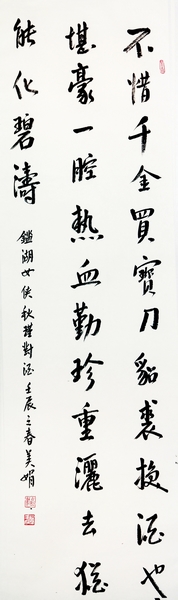 不惜千金買寶刀貂裘換酒也
堪豪一腔熱血勤珍重灑去猶
能化碧濤
鑑湖女俠秋瑾對酒壬辰之春美娟